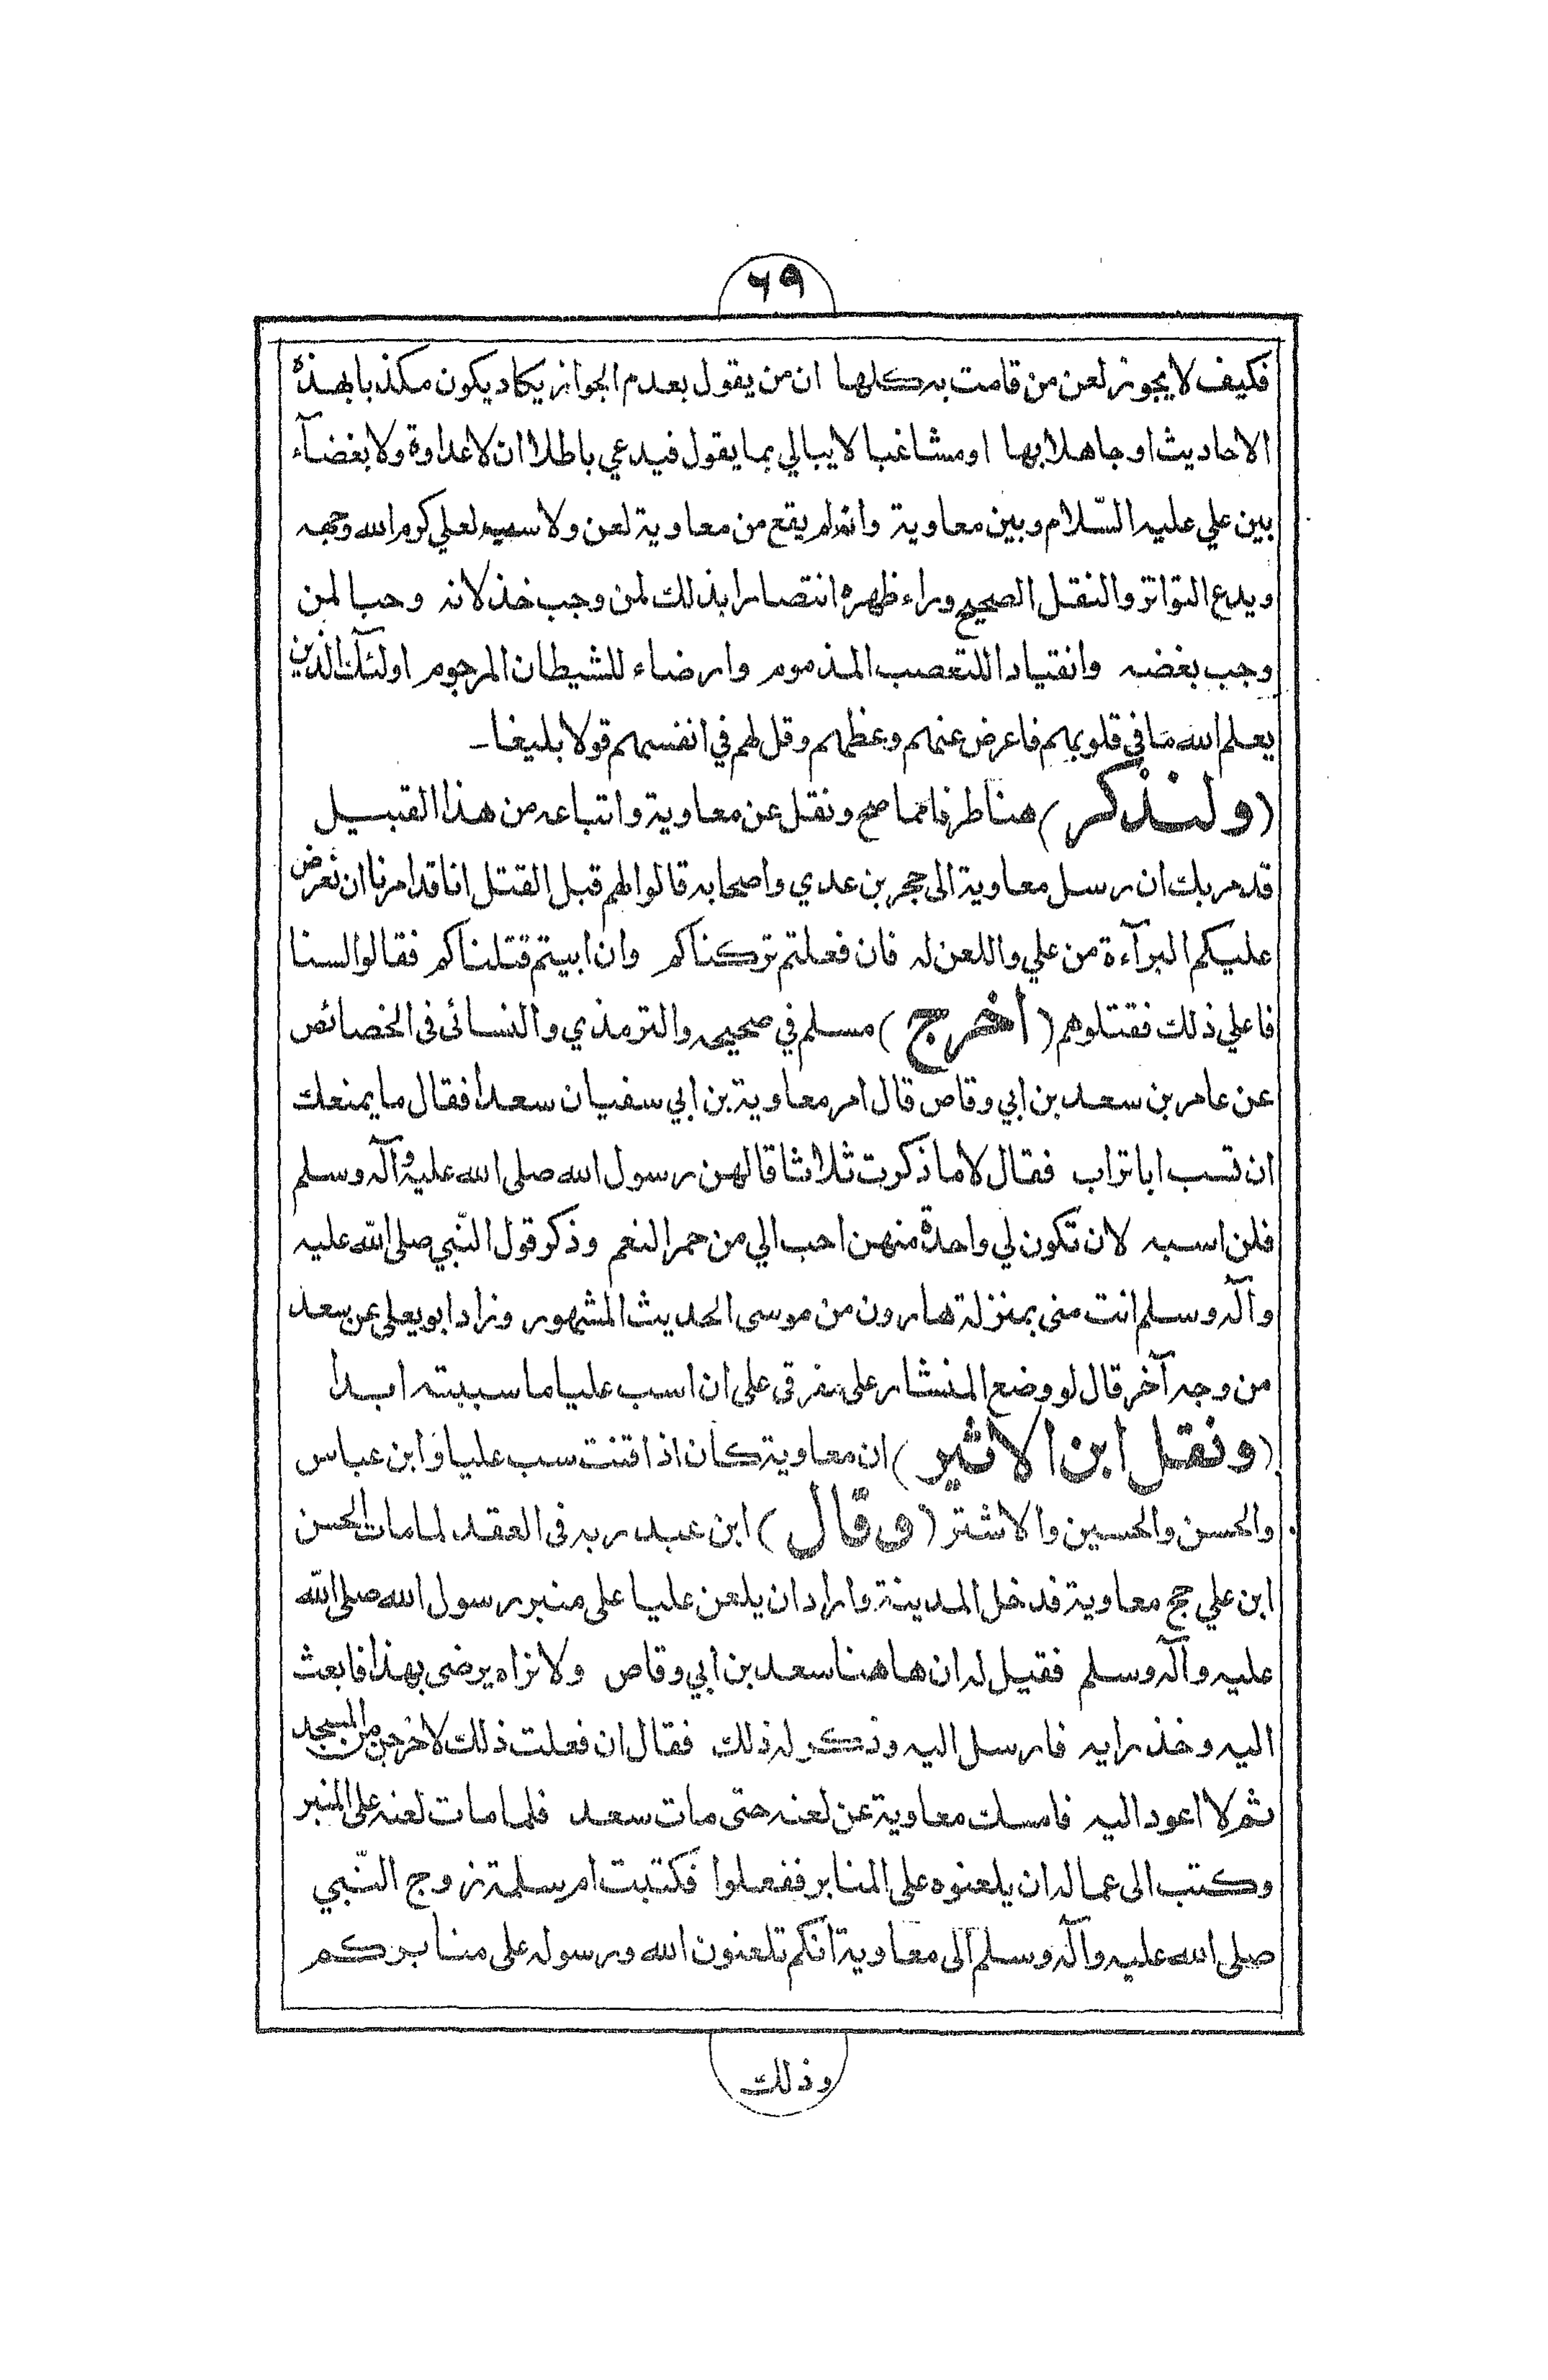 ٦٩
فكيف لا يجوز لعن من قامت به كلها ان من يقول بعدم الجواز يكاد يكون مكذبا بهذه
الاحاديث او جاهلا بها او مشاغبا لا يبالي بما يقول فيدعي باطلا ان لا عداوة ولا بغضآء
بين علي عليه السّلام وبين معاوية وانه لم يقع من معاوية لعن ولا سب لعلي كرم الله وجهه
ويدع التواتر والنقل الصحيح وراء ظهره انتصارا بذلك لمن وجب خذلانه وحبا لمن
وجب بغضه وانقيادا للتعصب المذموم وارضاء للشيطان المرجوم اولئك الذين
يعلم الله ما في قلوبهم فاعرض عنهم وعظهم وقل لهم في انفسهم قولا بليغا ــ
(ولنذكر) هنا طرفا مما صح ونقل عن معاوية واتباعه من هذا القبيل
قد مر بك ان رسل معاوية الى حجر بن عدي واصحابه قالوا لهم قبل القتل انا قد امرنا ان نعرض
عليكم البرآءة من علي واللعن له فان فعلتم تركناكم وان ابيتم قتلناكم فقالوا لسنا
فاعلي ذلك فقتلوهم (أخرج) مسلم في صحيحه والترمذي والنسائى فى الخصائص
عن عامر بن سعد بن ابي وقاص قال امر معاوية بن ابي سفيان سعدا فقال ما يمنعك
ان تسب ابا تراب فقال لا ما ذكرت ثلاثا قالهن رسول الله صلى الله عليه وآله وسلم
فلن اسبه لان تكون لي واحدة منهن احب الي من حمر النعم وذكر قول النّبي صلى الله عليه
وآله وسلم انت منى بمنزلة هارون من موسى الحديث المشهور وزاد ابو يعلى عن سعد
من وجه آخر قال لو وضع المنشار على مفرقى على ان اسب عليا ما سببته ابدا
(ونقل ابن الاثير) ان معاوية كان اذا قنت سب عليا وابن عباس
والحسن والحسين والاشتر (وقال) ابن عبد ربه فى العقد لما مات الحسن
ابن علي حج معاوية فدخل المدينة واراد ان يلعن عليا على منبر رسول الله صلى الله
عليه وآله وسلم فقيل له ان هاهنا سعد بن ابي وقاص ولا نراه يرضى بهذا فابعث
اليه وخذ رايه فارسل اليه وذكر له ذلك فقال ان فعلت ذلك لاخرجن من المسجد
ثم لا اعود اليه فامسك معاوية عن لعنه حتى مات سعد فلما مات لعنه على المنبر
وكتب الى عماله ان يلعنوه على المنابر ففعلوا فكتبت ام سلمة زوج النّبي
صلى الله عليه وآله وسلم الى معاوية انكم تلعنون الله ورسوله على منابركم
وذلك